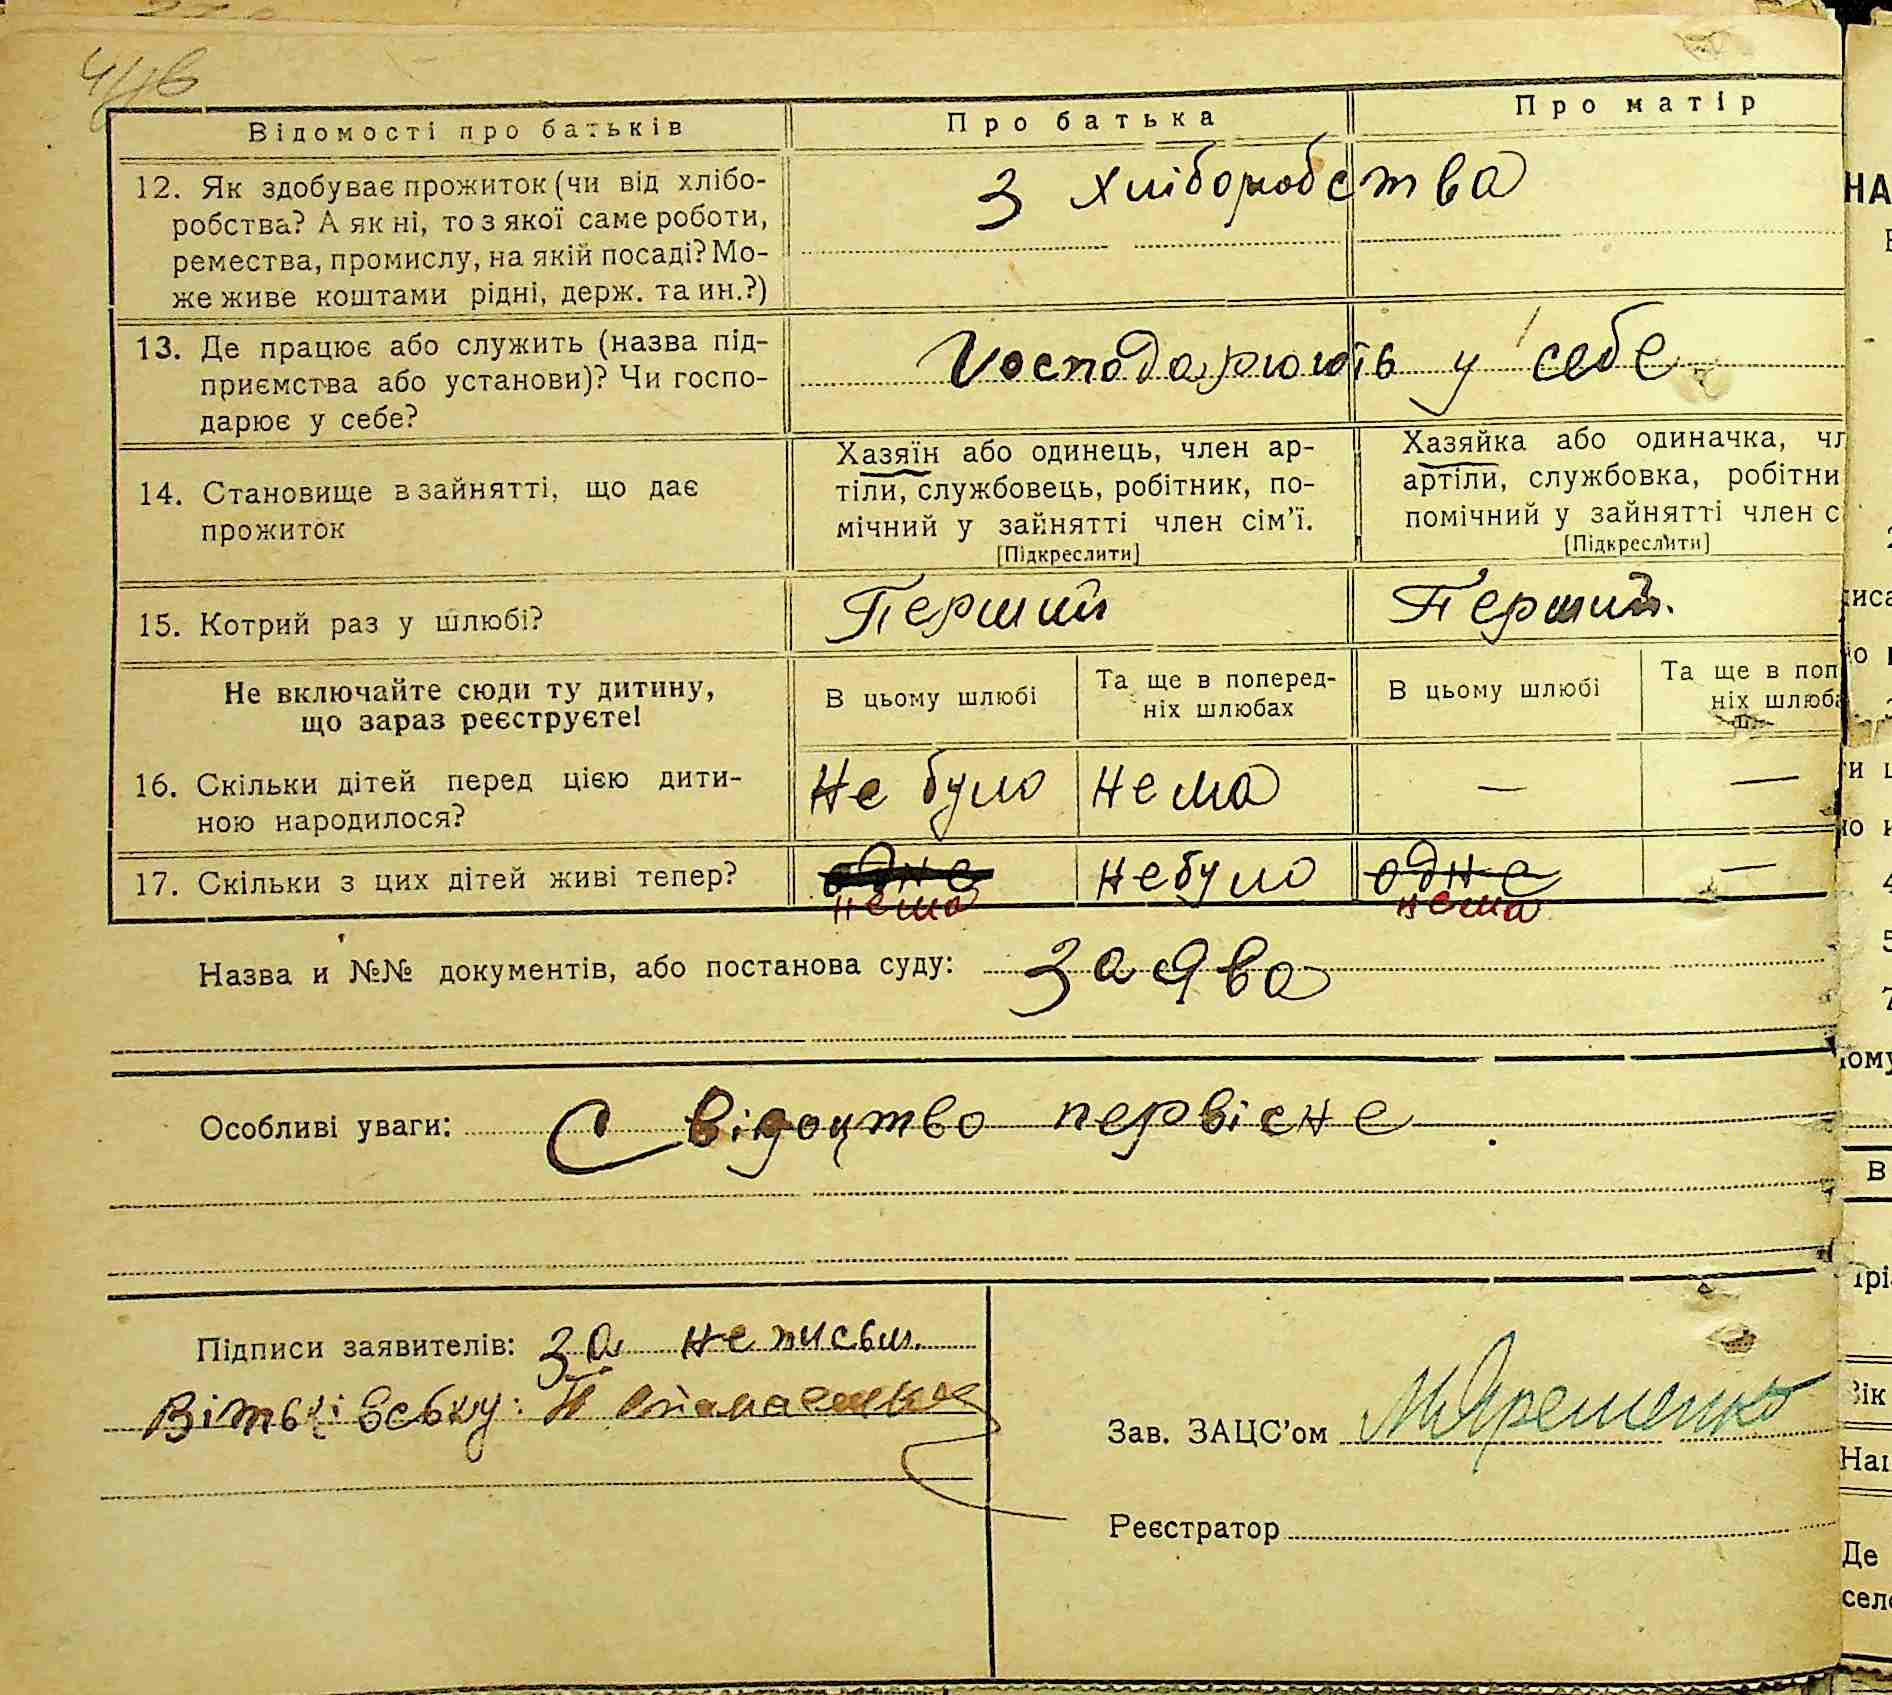 Відомості про батьків Про батька Про матір
12. Як здобуває прожиток (чи від хлібо-
робства? А як ні, то з якої саме роботи,
ремества, промислу, на якій посаді? Мо-
же живе коштами рідні, держ. та ин.?)
З хліборобства
13. Де працює або служить (назва під-
приємства або установи)? Чи госпо-
дарює у себе?
Господарюють у себе
14. Становище в зайнятті, що дає
прожиток
Хазяїн або одинець, член ар-
тіли, службовець, робітник, по-
мічний у зайнятті член сім'ї.
[Підкреслити]
Хазяйка або одиначка, чл
артіли, службовка, робітни
помічний у зайнятті член с
[Підкреслити]
15. Котрий раз у шлюбі? Перший Перший.
Не включайте сюди ту дитину,
що зараз реєструєте!
В цьому шлюбі
Та ще в поперед-
ніх шлюбах
В цьому шлюбі
Та ще в поп
ніх шлюба
16. Скільки дітей перед цією дити-
ною народилося?
Не було Нема — —
17. Скільки з цих дітей живі тепер? одне не було одне —
нема нема
Назва и №№ документів, або постанова суду: заява
Особливі уваги: Свідоцтво первісне
Підписи заявителів: за неписьм.
Вітьківську:
Зав. ЗАЦС'ом МЯременко
Реєстратор
НА
В
Де
село